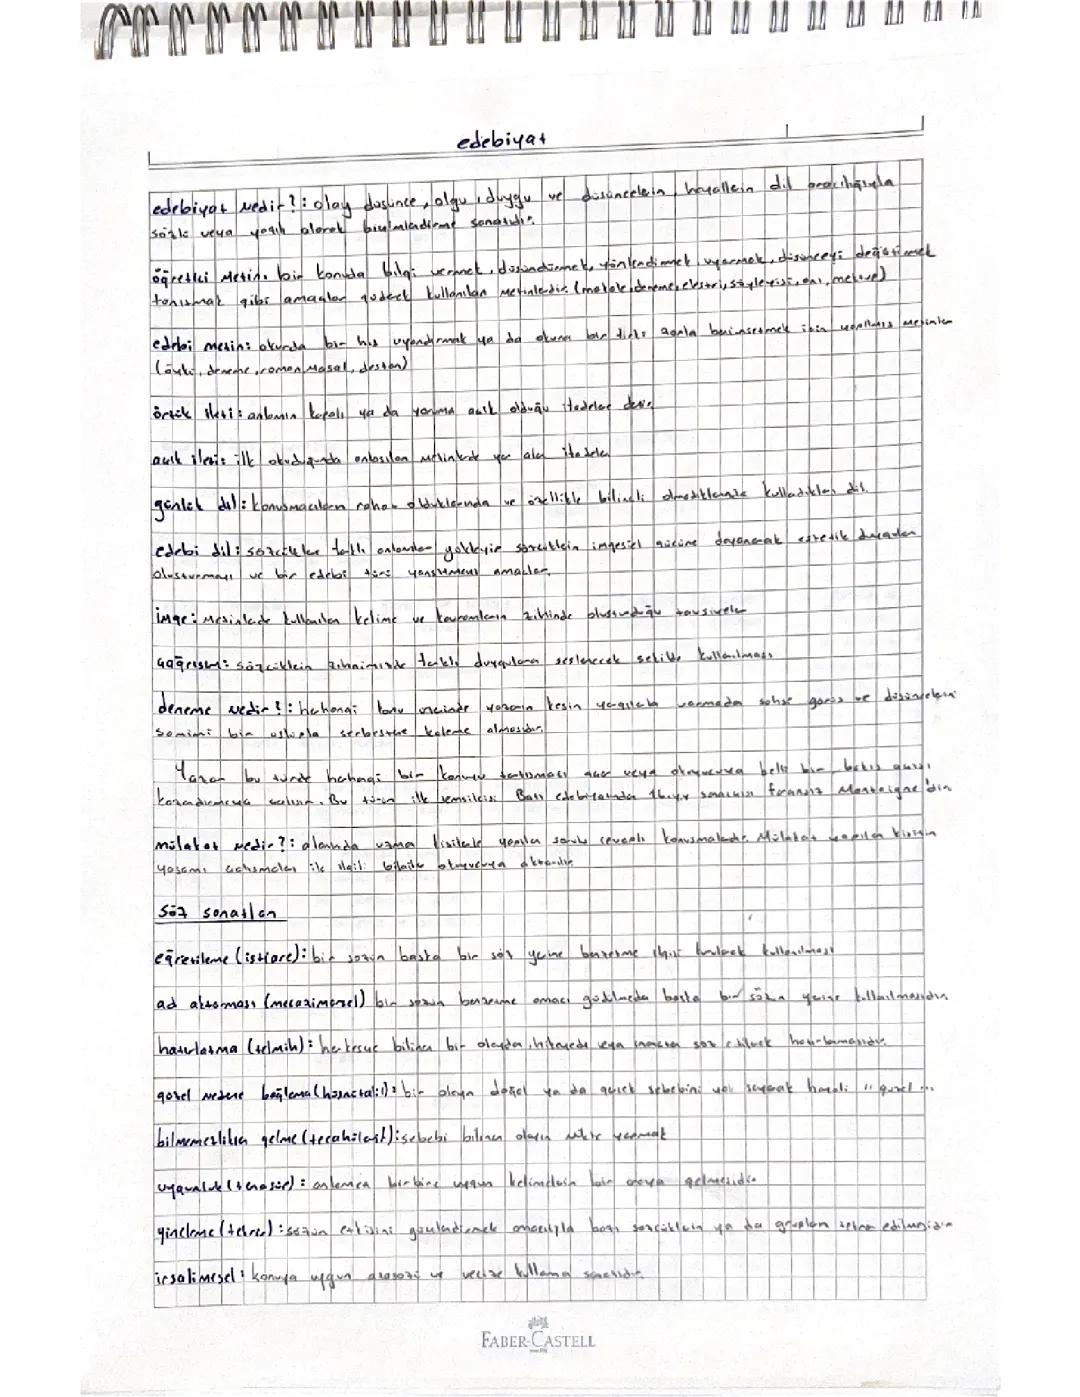 edebiyat
edebiyat nedir?: olay düşünce, olgu, duygu ve düşüncelerin, hayallerin dil aracılığıyla
sözlü veya yazılı olarak biçimlendirme sanatıdır.
öğretici metin: bir konuda bilgi vermek, düşündürmek, yönlendirmek, uyarmak, düşünceyi değiştirmek
tanıtmak gibi amaçlar güderek kullanılan metinlerdir. (makale, deneme, eleştri, söyleyişi, anı, mektup)
edebi metin: okurda bir his uyandırmak ya da okuna bir türlü benimsetmek için yazılmış metinler
(öykü, deneme, roman, masal, destan)
örtük ileti: anlamın kapalı ya da yoruma açık olduğu ifadeler denir.
açık ileti: ilk okuduğunda anlaşılan metinlerde yer alan ifadeler
günlük dil: konuşmacıların rahat olduklarında ve özellikle bilinçli olmadıklarında kulladıkları dil.
edebi dil: sözcükler farklı anlamlar yükleyip sözcüklerin imgesel gücüne dayanarak estetik duyguları
oluşturmayı ve bir edebi türü yansıtmayı amaçlar.
imge: metinlerde kullanılan kelime ve kavramların zihinde oluşturduğu tavsiyeler
çağrışım: sözcüklerin zihnimizde farklı duygulara seslenecek şekilde kullanılması
deneme nedir?: herhangi konu üzerinde yazarın kesin yargılara varmadan şahsi görüş ve düşüncelerini
samimi bir üslupla serbestçe kaleme almasıdır.
Yazar bu türde herhangi bir konuyu tartışmayı açar veya okuyucuya belli bir bakış açısı
kazandırmaya çalışır. Bu türün ilk temsilcisi Batı edebiyatında 16.yy sanatçısı fransız Montaigne'dir
mülakat nedir?: alanında uzman kişilerle yapılan sorulu cevaplı konuşmalardır. Mülakat yapılan kişinin
yaşamı çalışmaları ile ilgili bilgiler okuyucuya aktarılır.
Söz sanatları
eğretileme (istiare): bir sözün başka bir söz yerine benzetme ilgisi kurularak kullanılması
ad aktarması (mecazimürsel) bir sözün benzetme amacı güdülmeden başka bir sözün yerine kullanılmasıdır.
hatırlatma (telmih): herkesçe bilinen bir olayda, hikayede veya inanca söz edilerek hatırlamasıdır.
güzel nedene bağlama (hüsnütalil): bir olayın doğal ya da gerçek sebebini yok sayarak hayali "güzel ...
bilmemezlikten gelme (tecahülarif): sebebi bilinen olayın yermek
uygunluk (tenasüp): anlamca birbirine uygun kelimelerin bir araya gelmesidir.
yineleme (tekrir): sözün etkisini güçlendirmek amacıyla bazı sözcüklerin ya da grupların tekrar edilmesidir
irsalimesel: konuya uygun atasözü ve vecize kullanma sanatıdır.
FABER-CASTELL